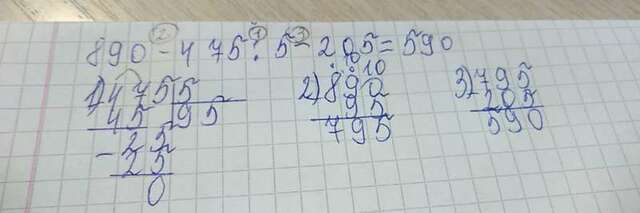 ② ① ③
890 - 475 : 5 - 205 = 590
10
1) 475 5 2) 890 3) 795
45 95 95 205
- 25 795 590
25
0